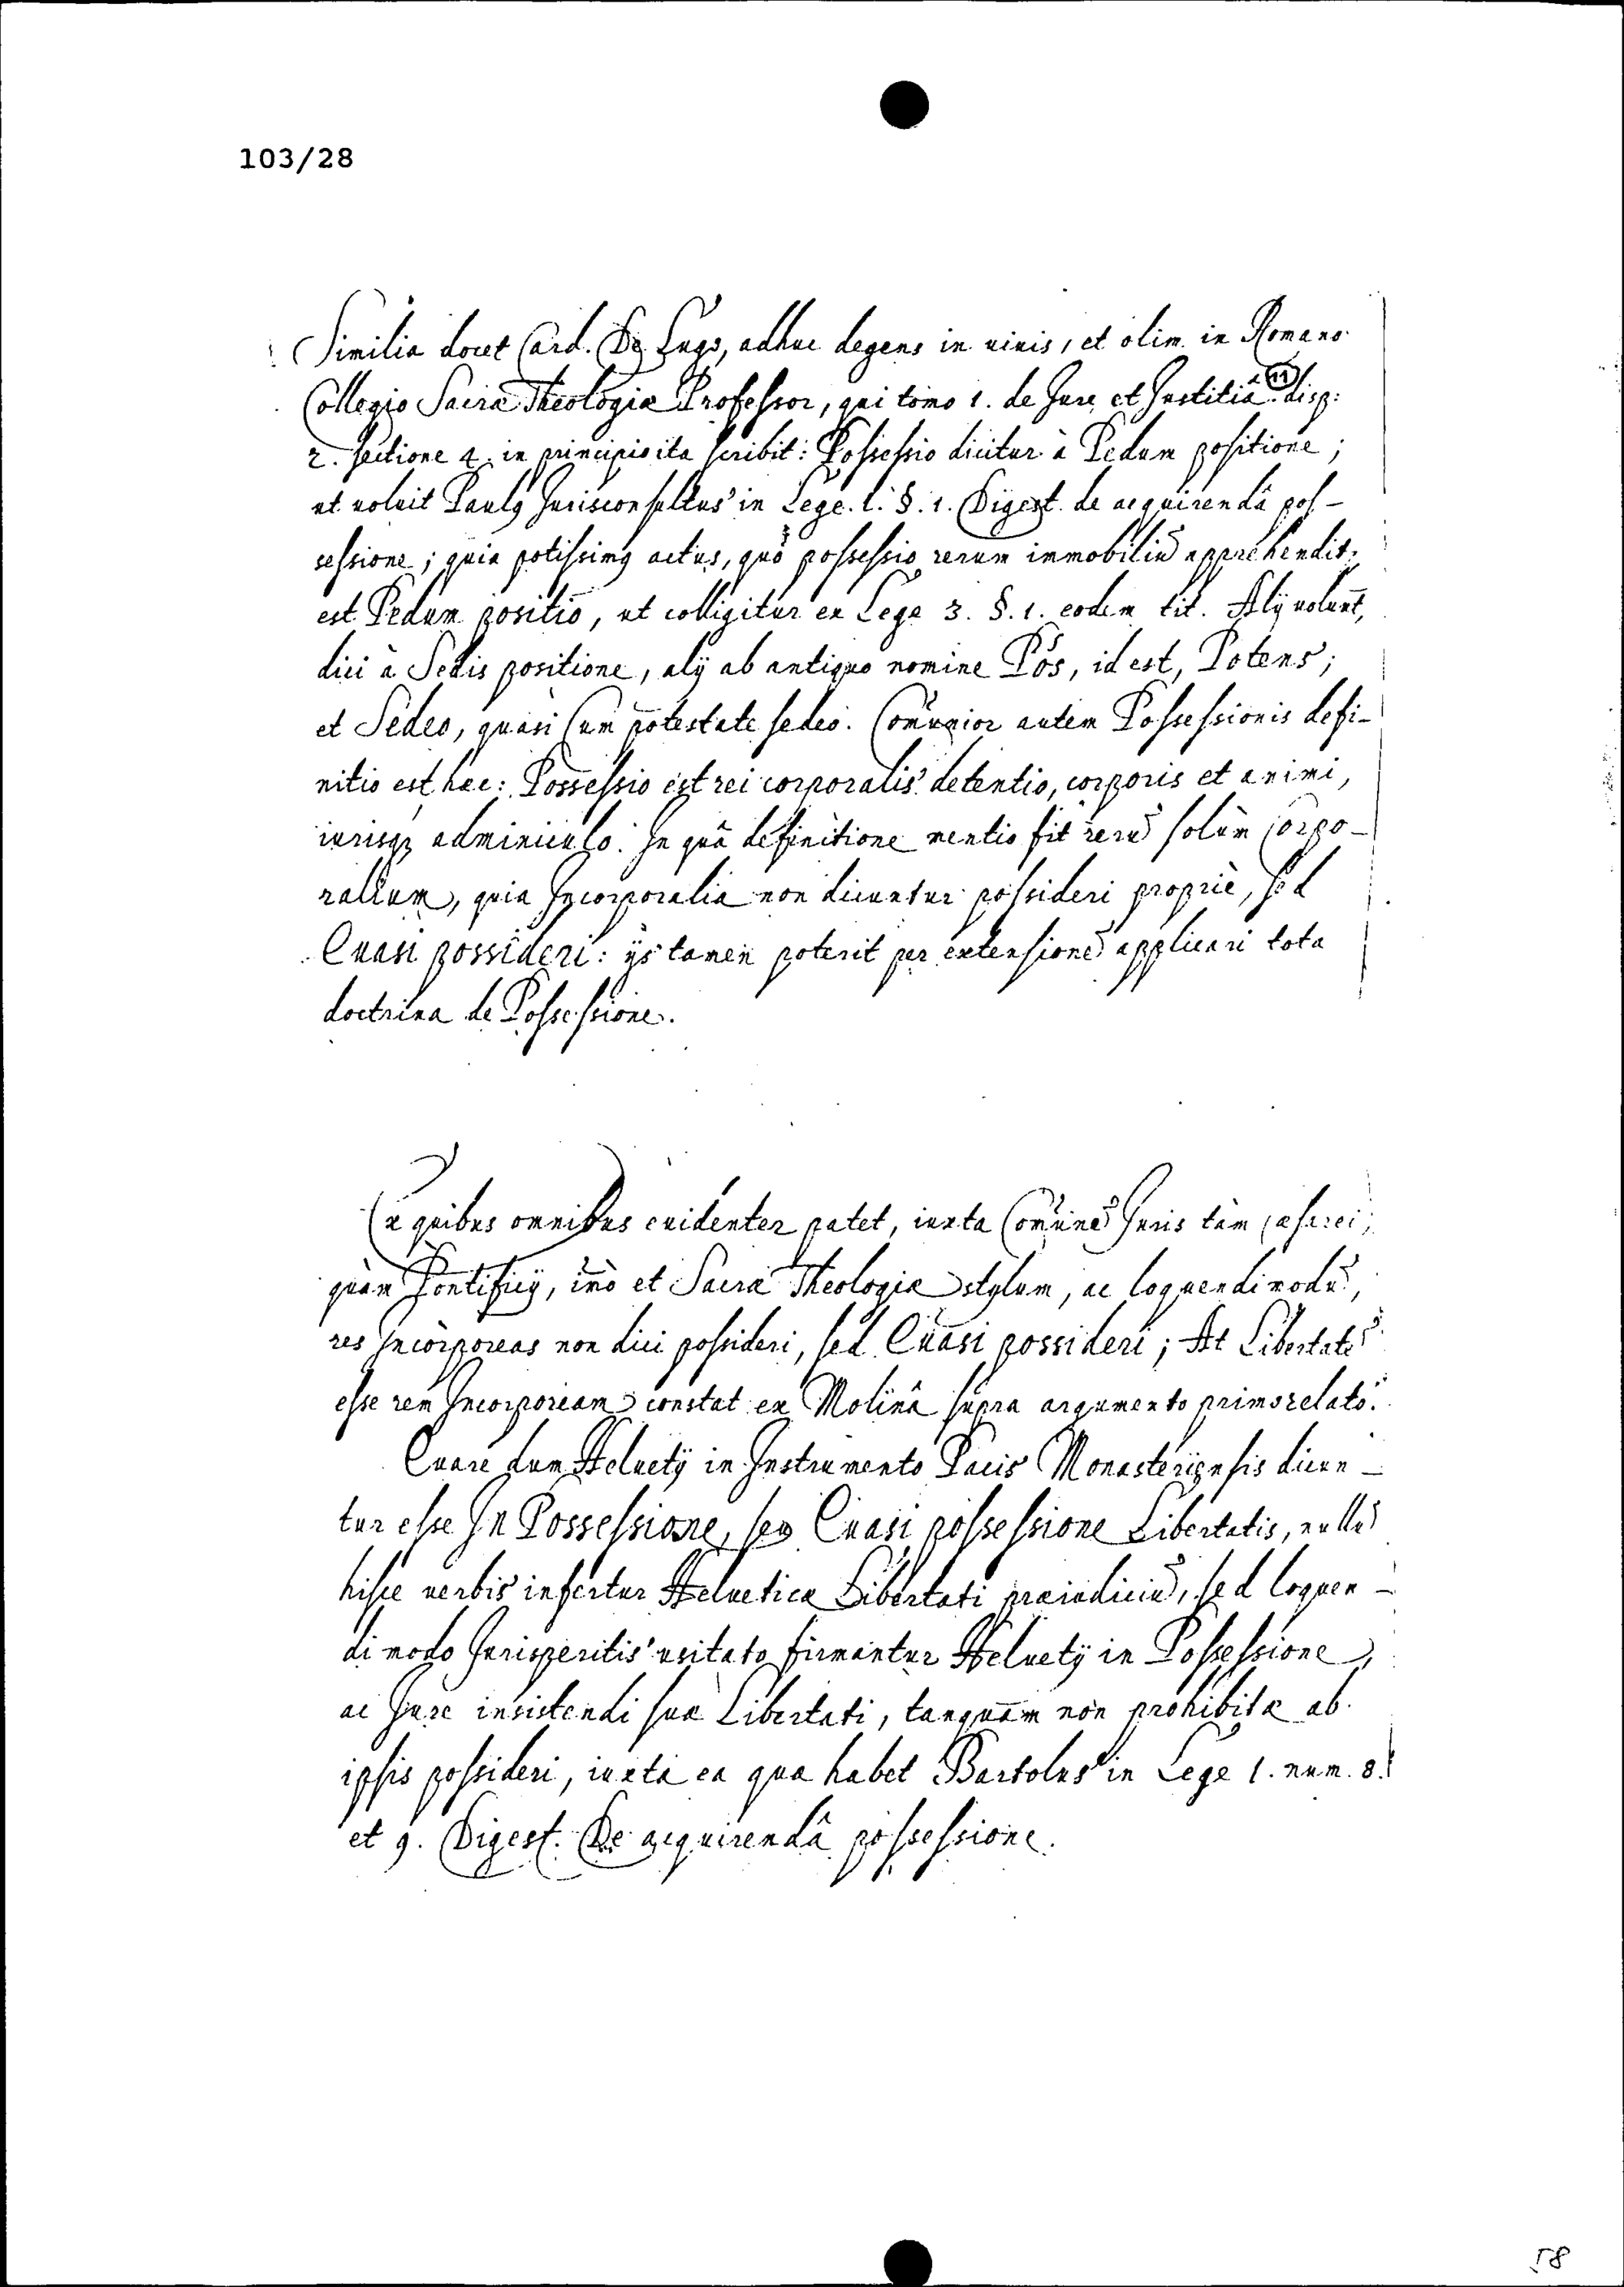 103/28
Similia docet Card. De Lugo, adhuc degens in uiuis, et olim in Romano
Collegio Sacræ Theologiæ Professor, qui tomo 1. de Jure et Justitiâ (11) disp:
2. sectione 4. in principio ita scribit: Possessio dicitur à Pedum positione;
ut uoluit Paulꝰ Jurisconsultus in Lege. 1. §. 1. Digest. de acquirendâ pos-
sessione; quia potissimꝰ actus, quô possessio rerum immobiliũ apprehendit,
est Pedum positio, ut colligitur ex Lege 3. §. 1. eodem tit. Alÿ uolunt,
dici à Sedis positione, alÿ ab antiquo nomine Pos, id est, Potens;
et Sedeo, quasi Cum potestate sedeo. Com̃unior autem Possessionis defi-
nitio est hæc: Possessio est rei corporalis detentio, corporis et animi,
iurisqꝫ adminiculo. In quâ definitione mentio fit rerũ solùm Corpo-
ralium, quia Incorporalia non dicuntur possideri propriè, sed
Quasi possideri: ÿs tamen poterit per extensionẽ applicari tota
doctrina de Possessione.
Ex quibus omnibus euidenter patet, iuxta Com̃unẽ Juris tàm Cæsarei,
quàm Pontificÿ, imò et Sacræ Theologiæ stylum, ac loquendi modũ,
res Incorporeas non dici possideri, sed Quasi possideri; At Libertatẽ
esse rem Incorpoream constat ex Molinâ supra argumento primo relato.
Quare dum Heluetÿ in Instrumento Pacis Monasteriensis dicun-
tur esse In Possessione, seu Quasi possessione Libertatis, nullũ
hisce uerbis infertur Helueticæ Libertati præiudiciũ, sed loquen-
di modo Jurisperitis usitato firmantur Heluetÿ in Possessione,
ac Jure insistendi suæ Libertati, tanquam non prohibitæ ab
ipsis possideri, iuxta ea quæ habet Bartolus in Lege 1. num. 8.
et 9. Digest. De acquirendâ possessione.
58